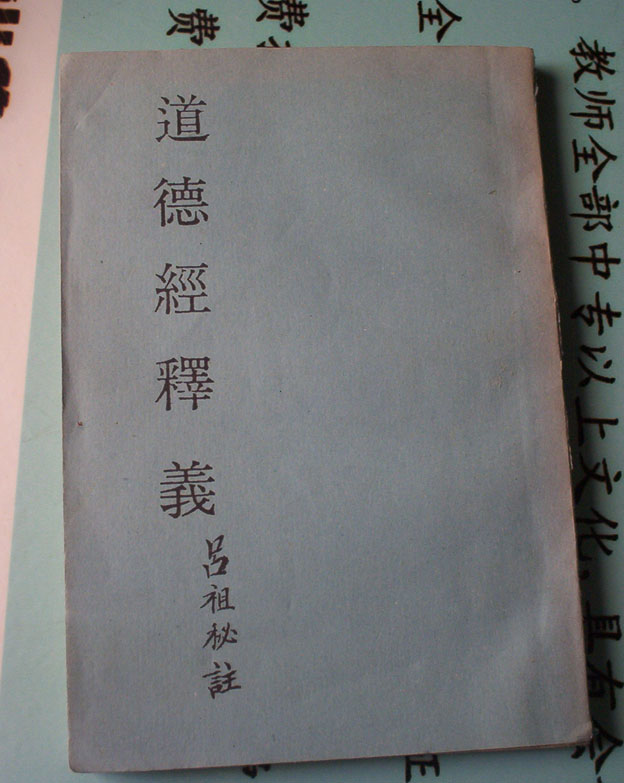 道德經釋義
呂祖秘註
教师全部中专以上文化，具有
全
费
费